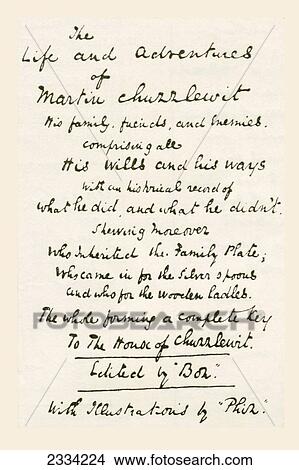 The
Life and Adventures
of
Martin Chuzzlewit
His family, friends, and Enemies.
comprising all
His Wills and his ways
With an historical record of
what he did, and what he didn't.
Shewing moreover
Who Inherited the Family Plate;
Who came in for the Silver Spoons
and who for the Wooden Ladles.
The whole forming a complete key
To The House of Chuzzlewit
Edited by "Boz".
With Illustrations by "Phiz".
FOTOSEARCH
2334224 www.fotosearch.com